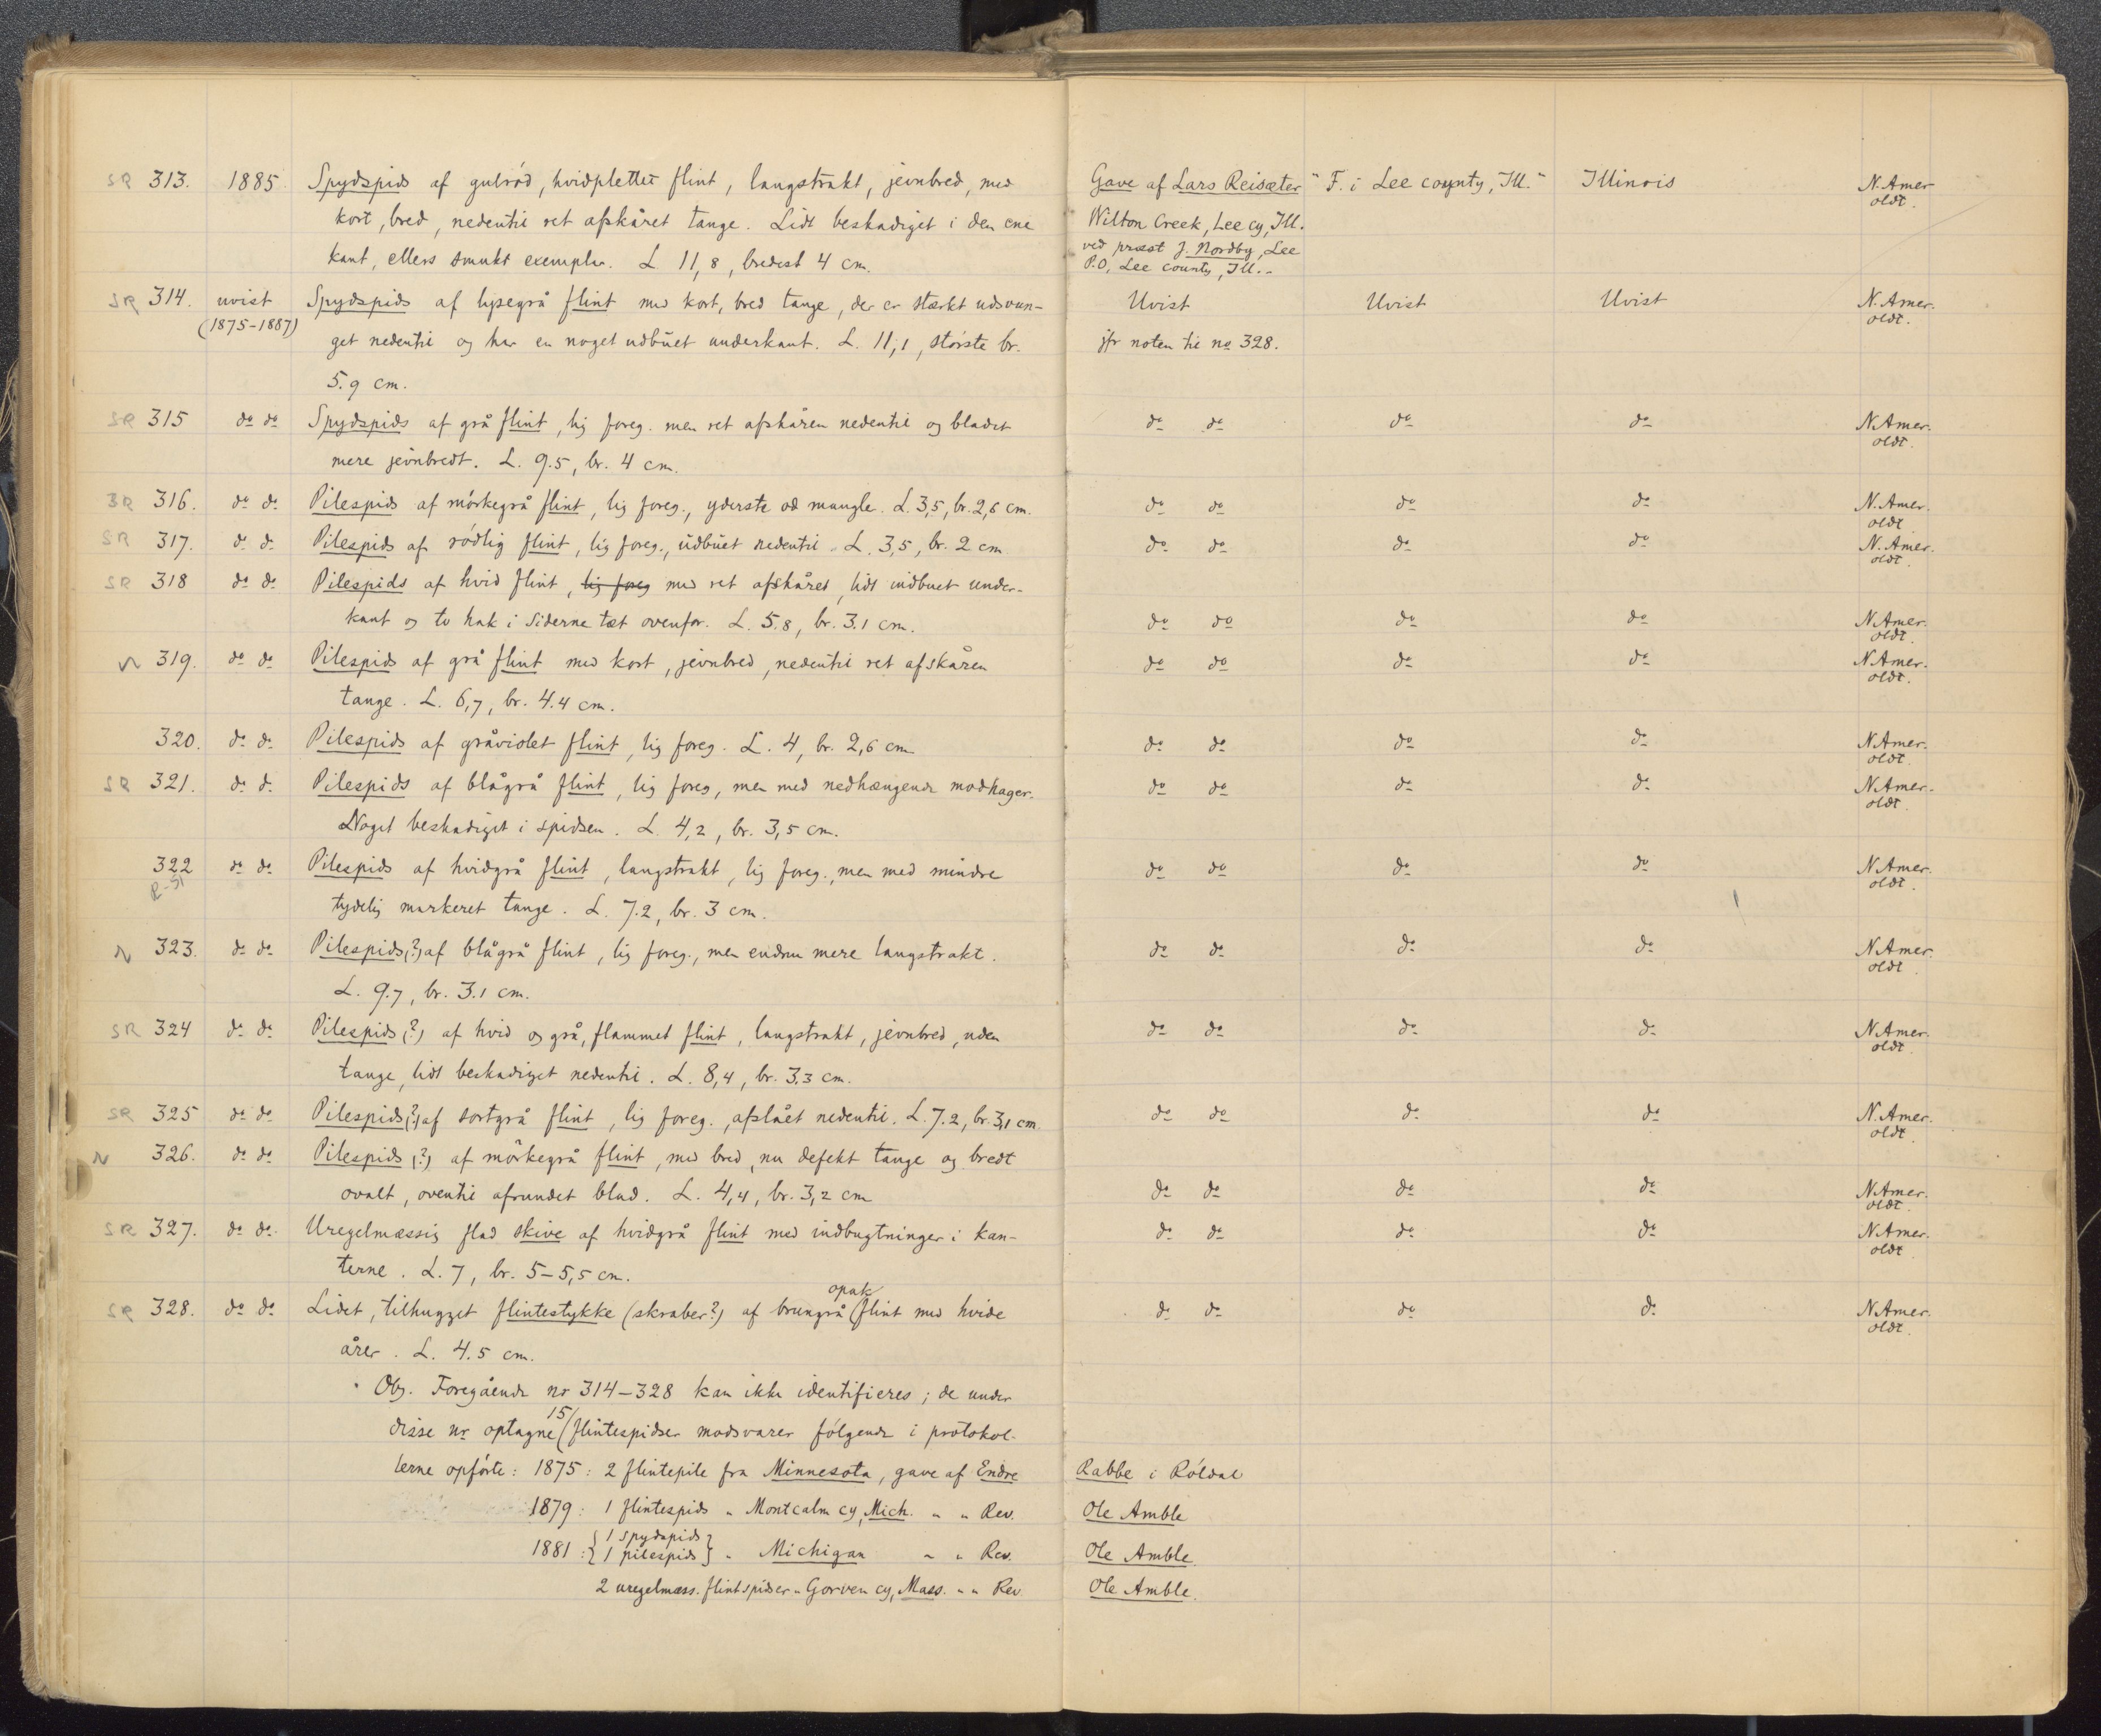 SR 313. 1885 Spydspids af gulrød, hvidplettet flint, langstrakt, jevnbred, med Gave af Lars Reisæter "F. i Lee county, Ill." Illinois N. Amer oldt.
kort, bred, nedentil ret afskåret tange. Lidt beskadiget i den ene Wilton Creek, Lee cy, Ill.
ved præst J. Nordby, Lee
kant, ellers smukt exemplar. L. 11,8, bredest 4 cm. P.O, Lee county, Ill.-
SR 314. uvist Spydspids af lysegrå flint med kort, bred tange, der er stærkt udsvun- Uvist Uvist Uvist N. Amer. oldt.
(1875-1887) get nedentil og har en noget udbuet underkant. L. 11,1, største br. jfr noten til no 328.
5.9 cm.
SR 315 do do Spydspids af grå flint, lig foreg. men ret afskåren nedentil og bladet do do do do N. Amer. oldt.
mere jevnbredt. L. 9.5, br. 4 cm.
SR 316. do do Pilespids af mörkegrå flint, lig foreg., yderste od mangle. L. 3,5, br. 2,6 cm. do do do do N. Amer. oldt
SR 317. do do Pilespids af rödlig flint, lig foreg., udbuet nedentil. L. 3,5, br. 2 cm do do do do N. Amer. oldt.
SR 318 do do Pilespids af hvid flint, lig foreg med ret afskåret, lidt indbuet under-
kant og to hak i siderne tæt ovenfor. L. 5.8, br. 3.1 cm. do do do do N. Amer. oldt.
N 319. do do Pilespids af grå flint med kort, jevnbred, nedentil ret afskåren do do do do N. Amer. oldt.
tange. L. 6,7, br. 4.4 cm.
320. do do Pilespids af gråviolet flint, lig foreg. L. 4, br. 2,6 cm do do do do N. Amer. oldt.
SR 321. do do Pilespids af blågrå flint, lig foreg, men med nedhængende modhager. do do do do N. Amer. oldt.
Noget beskadiget i spidsen. L. 4,2, br. 3,5 cm.
322 do do Pilespids af hvidgrå flint, langstrakt, lig foreg., men med mindre do do do do N. Amer. oldt.
R-51 tydelig markeret tange. L. 7.2, br. 3 cm.
N 323. do do Pilespids (?) af blågrå flint, lig foreg., men endnu mere langstrakt. do do do do N. Amer. oldt.
L. 9.7, br. 3.1 cm.
SR 324 do do Pilespids (?) af hvid og grå, flammet flint, langstrakt, jevnbred, uden do do do do N. Amer. oldt.
tange, lidt beskadiget nedentil. L. 8,4, br. 3.3 cm.
SR 325 do do Pilespids (?) af sortgrå flint, lig foreg., afslået nedentil. L. 7.2, br. 3,1 cm. do do do do N. Amer. oldt.
N 326. do do Pilespids (?) af mörkegrå flint, med bred, nu defekt tange og bredt
ovalt, oventil afrundet blad. L. 4,4, br. 3,2 cm do do do do N. Amer. oldt.
SR 327. do do. Uregelmæssig flad skive af hvidgrå flint med indbugtninger i kan- do do do do N. Amer. oldt
terne. L. 7, br. 5-5,5 cm.
SR 328. do do Lidet, tilhugget flintestykke (skraber?) af brungrå opak flint med hvide do do do do N. Amer. oldt.
årer. L. 4.5 cm.
Obs. Foregående nr 314-328 kan ikke identifieres; de under
disse nr optagne 15 flintespidser modsvarer følgende i protokol-
lerne opførte: 1875: 2 flintepile fra Minnesota, gave af Endre Rabbe i Röldal
1879: 1 flintespids " Montcalm cy, Mich. " " Rev. Ole Amble
1881: {1 spydspids 1 pilespids} " Michigan " " Rev. Ole Amble.
2 uregelmæss. flintspidser " Gorven cy, Mass. " " Rev Ole Amble.